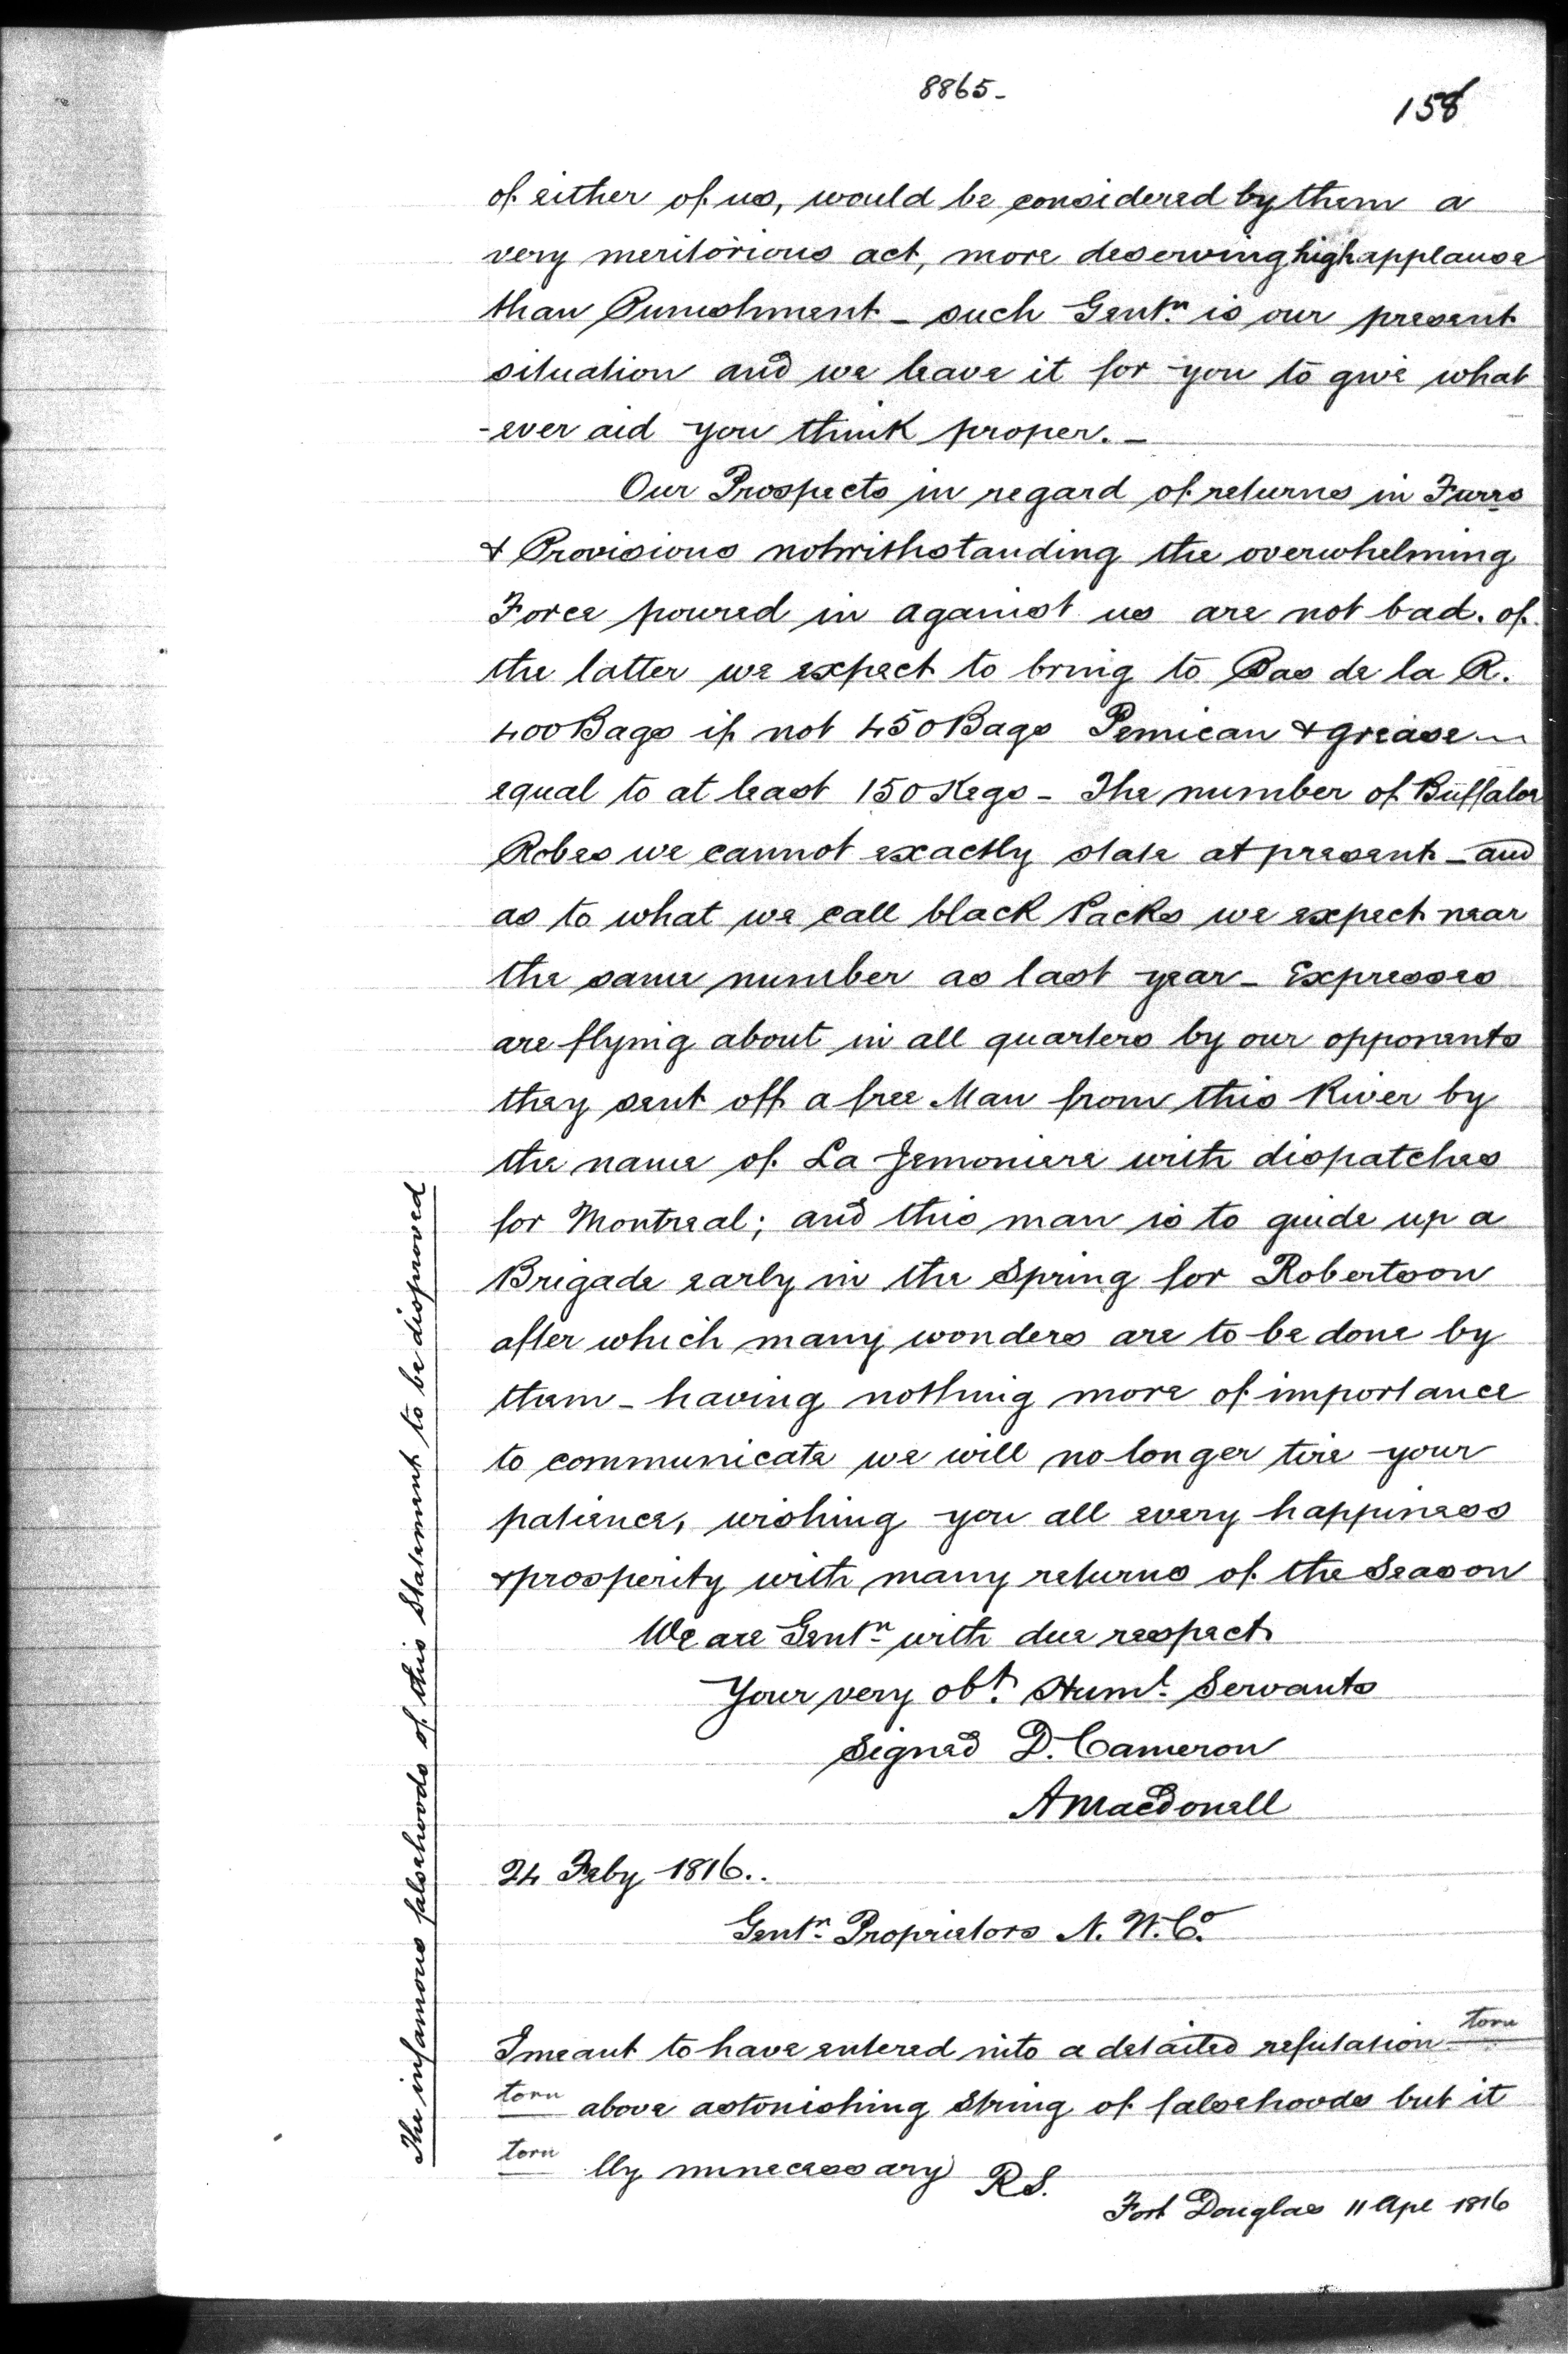 8865-
158
of either of us, would be considered by them a
very meritorious act, more deserving high applause
than Punishment - such Gentn. is our present
situation and we leave it for you to give what
-ever aid you think proper. -
Our Prospects in regard of returns in Furrs
& Provisions notwithstanding the overwhelming
Force poured in against us are not bad. of
the latter we expect to bring to Bas de la R.
400 Bags if not 450 Bags Pemican & grease
equal to at least 150 Kegs - The number of Buffaloe
Robes we cannot exactly state at present - and
as to what we call black Packs we expect near
the same number as last year - Expresses
are flying about in all quarters by our opponents
they sent off a free Man from this River by
the name of La Jemoniere with dispatches
for Montreal; and this man is to guide up a
Brigade early in the Spring for Robertson
after which many wonders are to be done by
them - having nothing more of importance
to communicate we will no longer tire your
patience, wishing you all every happiness
& prosperity with many returns of the Season
We are Gentn. with due respect
Your very obt. Huml. Servants
Signed D. Cameron
A Macdonell
24 Feby 1816..
Gentn. Proprietors N. W. Co.
I meant to have entered into a detailed refutation torn
torn above astonishing string of falsehoods but it
torn lly unnecessary R S.
Fort Douglas 11 Apl 1816
The infamous falsehoods of this Statement to be disproved